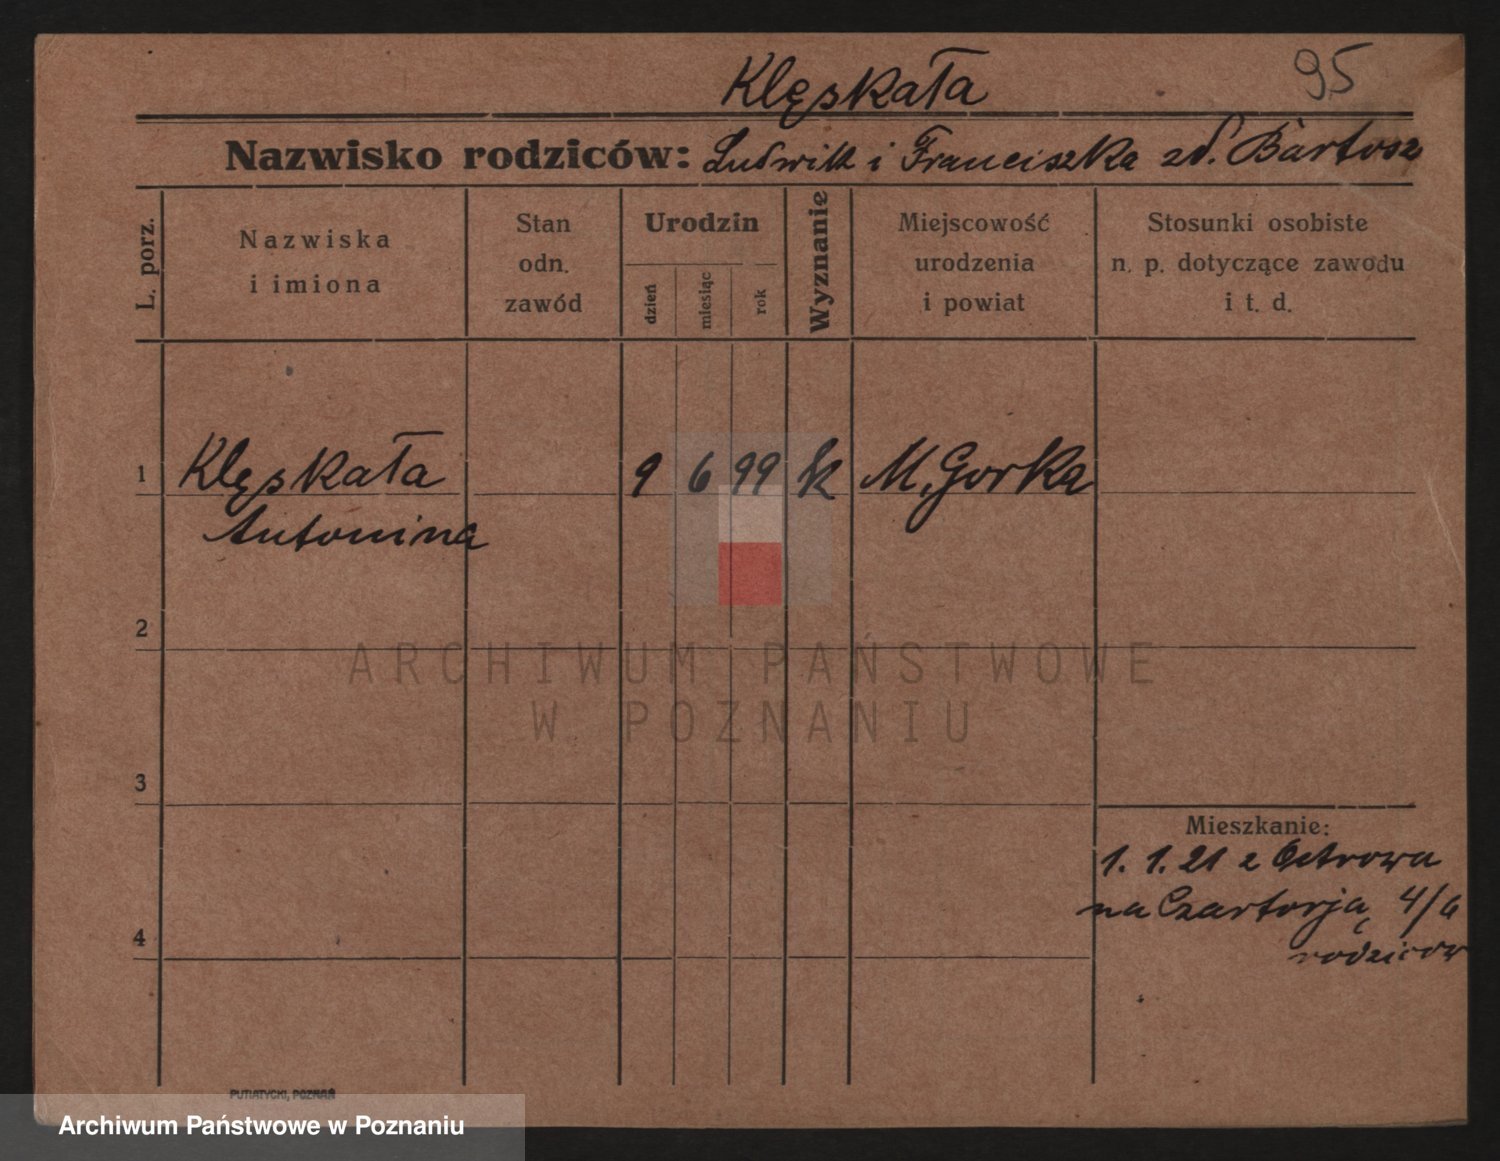 Klęskała
95
Nazwisko rodziców: Ludwik i Franciszka zd. Bartosz
L. porz.
Nazwiska i imiona
Stan odn. zawód
Urodzin
dzień
miesiąc
rok
Wyznanie
Miejscowość urodzenia i powiat
Stosunki osobiste n. p. dotyczące zawodu i t. d.
1 Klęskała 9 6 99 k M. Gorka
Antonina
2
3
4
Mieszkanie:
1. 1. 21 z Ostrowa
na Czartorją 4/a
rodziców
PUTIATYCKI, POZNAŃ
ARCHIWUM PAŃSTWOWE
W POZNANIU
Archiwum Państwowe w Poznaniu